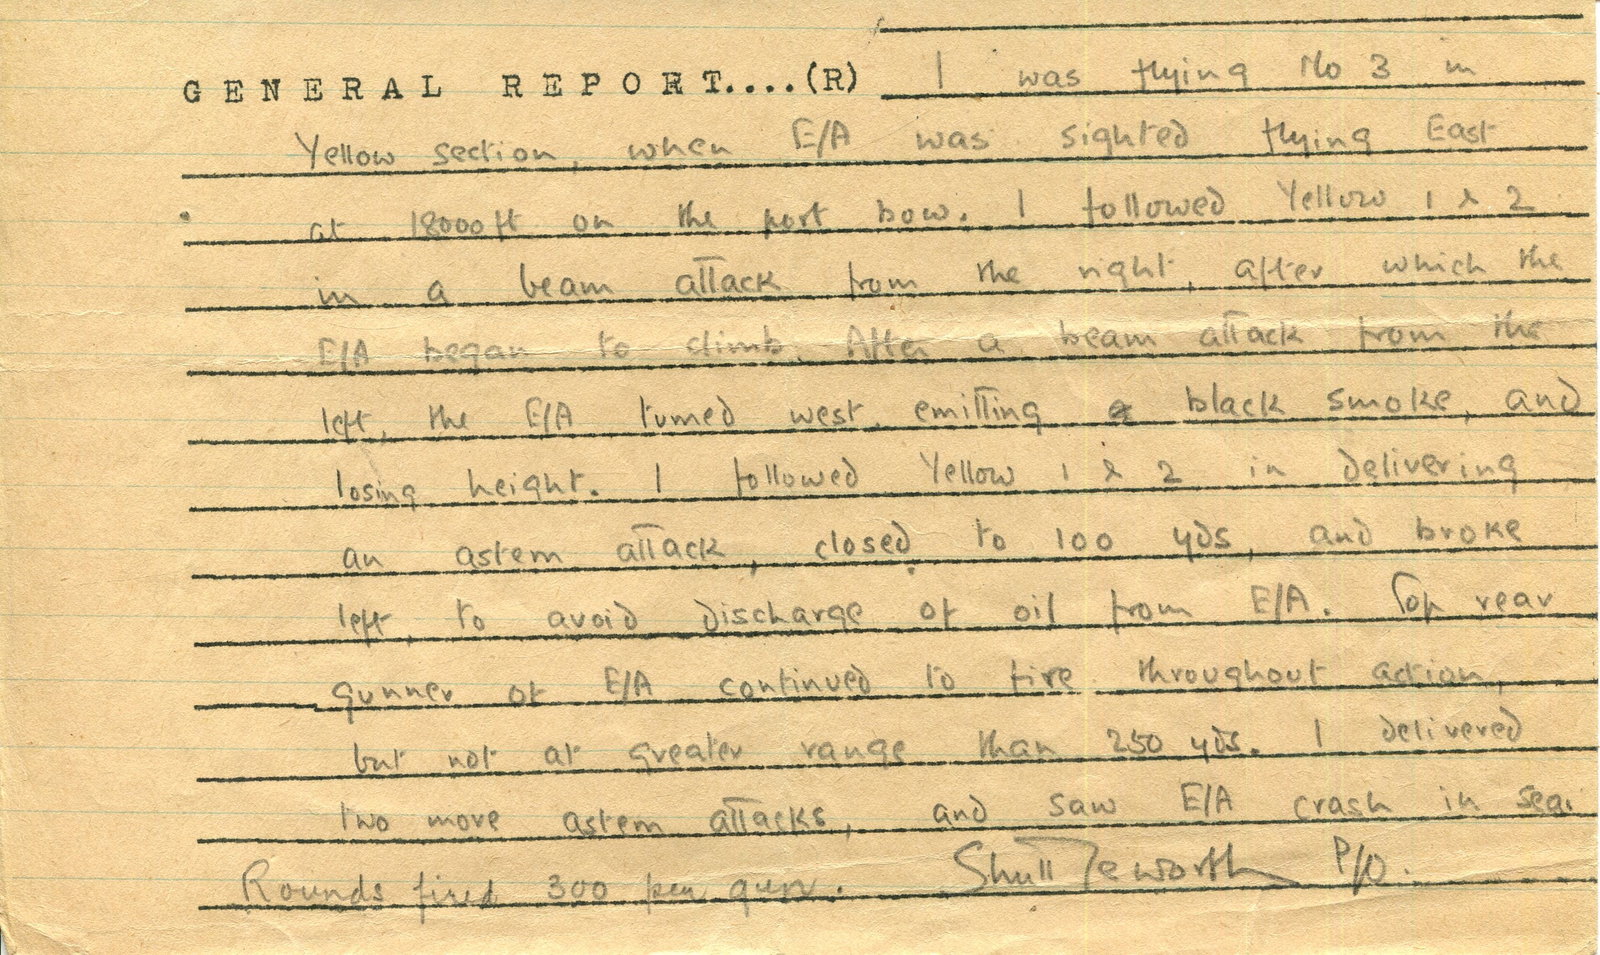 GENERAL REPORT....(R) I was flying No 3 in
Yellow section, when E/A was sighted flying East
at 18000 ft on the port bow. I followed Yellow 1 & 2
in a beam attack from the right, after which the
E/A began to climb. After a beam attack from the
left, the E/A turned west, emitting a black smoke, and
losing height. I followed Yellow 1 & 2 in delivering
an astern attack, closed to 100 yds, and broke
left to avoid discharge of oil from E/A. Top rear
gunner of E/A continued to fire throughout action,
but not at greater range than 250 yds. I delivered
two more astern attacks, and saw E/A crash in sea.
Rounds fired 300 per gun. Shuttleworth P/O.